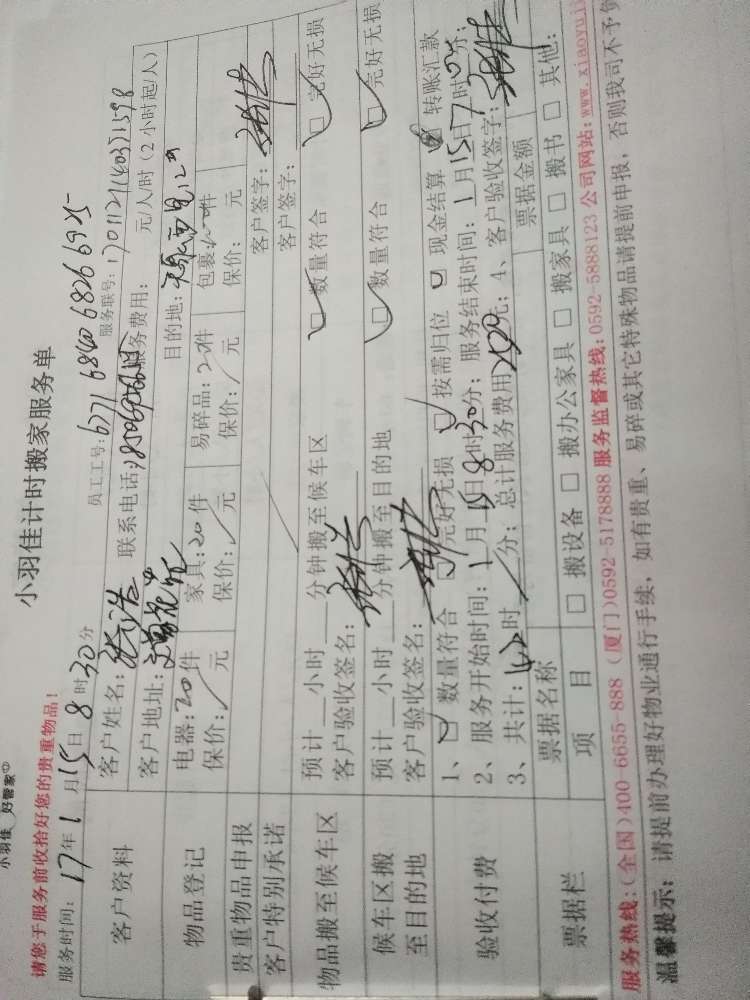 小羽佳 好管家
小羽佳计时搬家服务单
请您于服务前收拾好您的贵重物品！
员工工号: 6771 6840 6826 6925
服务时间: 17年1月15日8时30分
服务联号: 1701121140321598
客户资料
客户姓名: 联系电话: 服务费用: 元/人/时（2小时起/人）
客户地址: 目的地:
物品登记
电器: 20件 家具: 20件 易碎品: 20件 包裹 件
保价: / 元 保价: / 元 保价: / 元 保价: 元
贵重物品申报 客户签字:
客户特别承诺 客户签字:
物品搬至候车区
预计__小时__分钟搬至候车区 □数量符合 □完好无损
客户验收签名:
候车区搬至目的地
预计__小时__分钟搬至目的地 □数量符合 □完好无损
客户验收签名:
验收付费
1、□数量符合 □完好无损 □按需归位 □现金结算 □转账汇款
2、服务开始时间: 1月15日8时30分; 服务结束时间: 1月15日17时00分;
3、共计: 时/分; 总计服务费用 元; 4、客户验收签字:
票据栏
票据名称 票据金额
项目 □搬设备 □搬办公家具 □搬家具 □搬书 □其他:
服务热线:(全国)400-6655-888 (厦门)0592-5178888 服务监督热线:0592-5888123 公司网站:www.xiaoyu
温馨提示: 请提前办理好物业通行手续, 如有贵重、易碎或其它特殊物品请提前申报, 否则我司不予